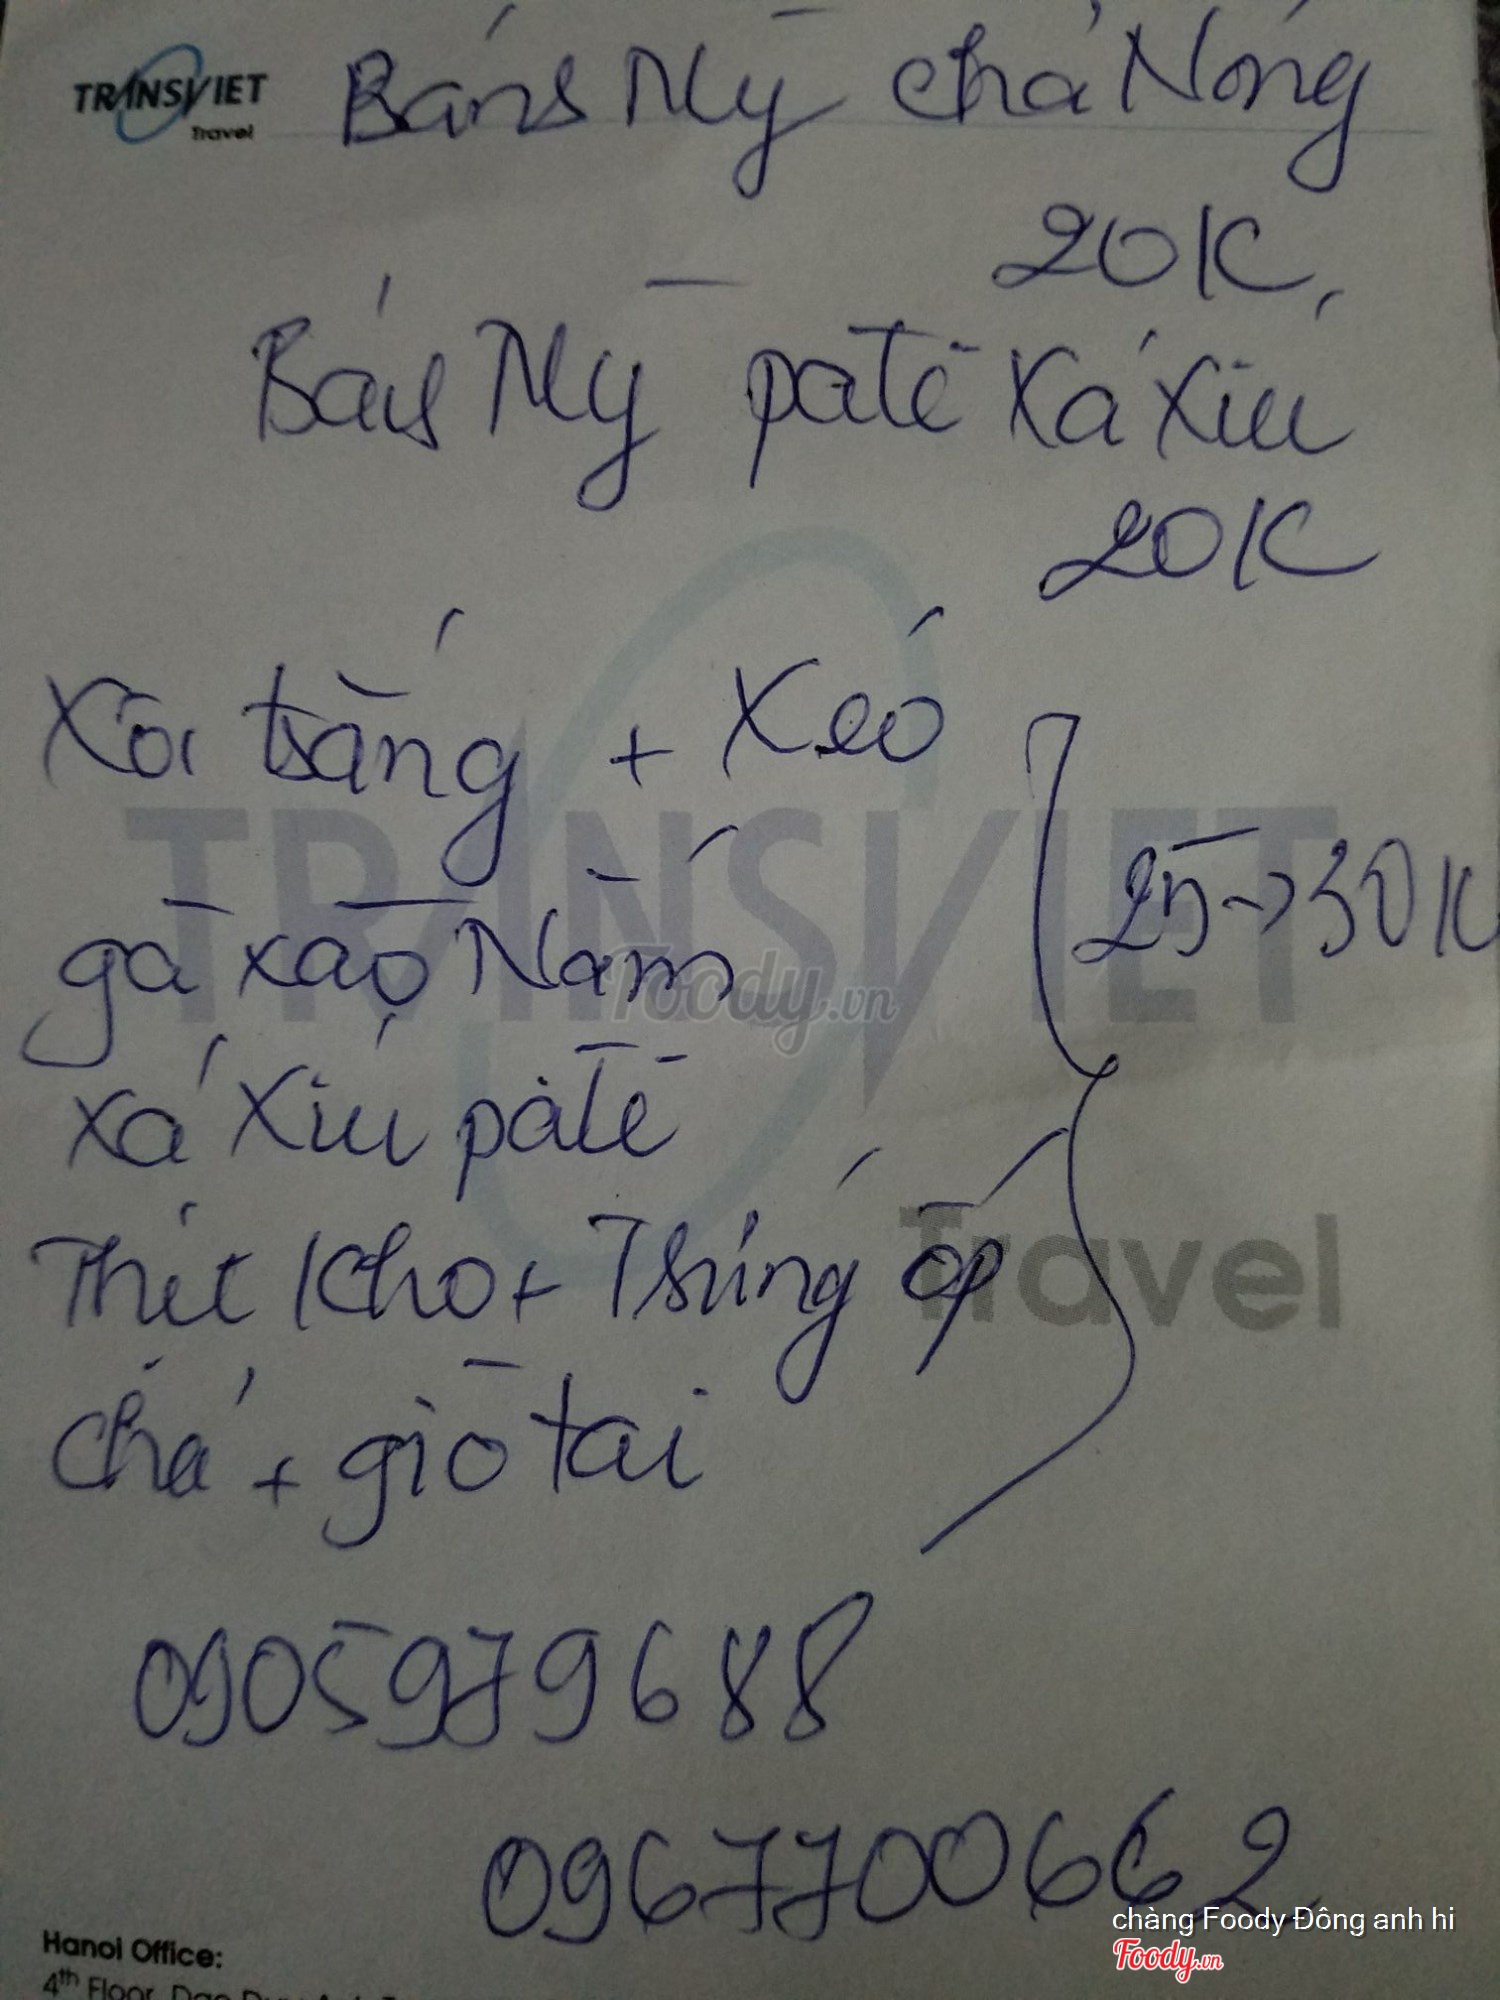 TRANSVIET
Travel
Bánh Mỳ chả Nóng
20K
Bánh Mỳ patê Xá Xíu
20K
Xôi trắng + Xéo
gà xào Nấm
25 -> 30K
xá Xíu patê
Thịt Kho + Trứng ốp
chả + giò tai
TRANSVIET
Travel
Foody.vn
0905979688
0967700662
chàng Foody Đông anh hi
Foody.vn
Hanoi Office:
4th Floor,